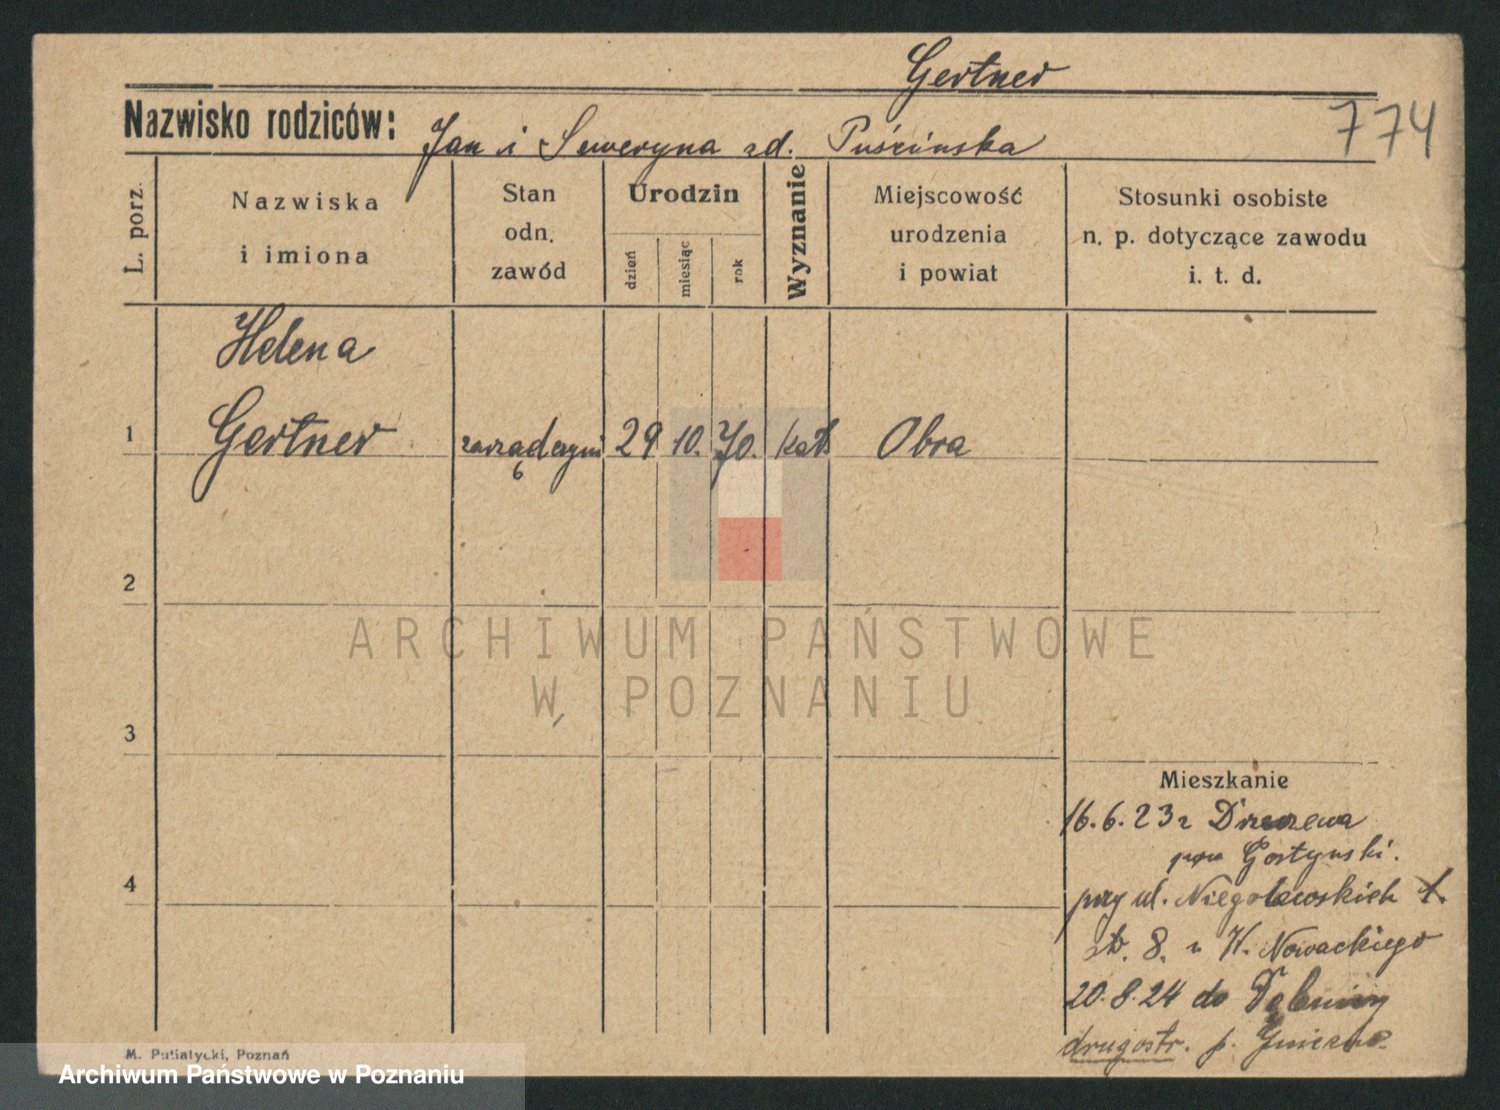 Gertner
Nazwisko rodziców: Jan i Seweryna zd. Puścińska
774
L. porz.
Nazwiska
i imiona
Stan
odn.
zawód
Urodzin
dzień
miesiąc
rok
Wyznanie
Miejscowość
urodzenia
i powiat
Stosunki osobiste
n. p. dotyczące zawodu
i. t. d.
Helena
1 Gertner zarządczyni 29 10. 70. kat. Obra
2
ARCHIWUM PAŃSTWOWE
W POZNANIU
3
Mieszkanie
16.6.23 z Drzczewa
pow Gostyński.
4
przy ul. Niegolewskich
8. u W. Nowackiego
20.8.24 do Dębnicy
drugostr. p. Gniezno
M. Putiatycki, Poznań
Archiwum Państwowe w Poznaniu